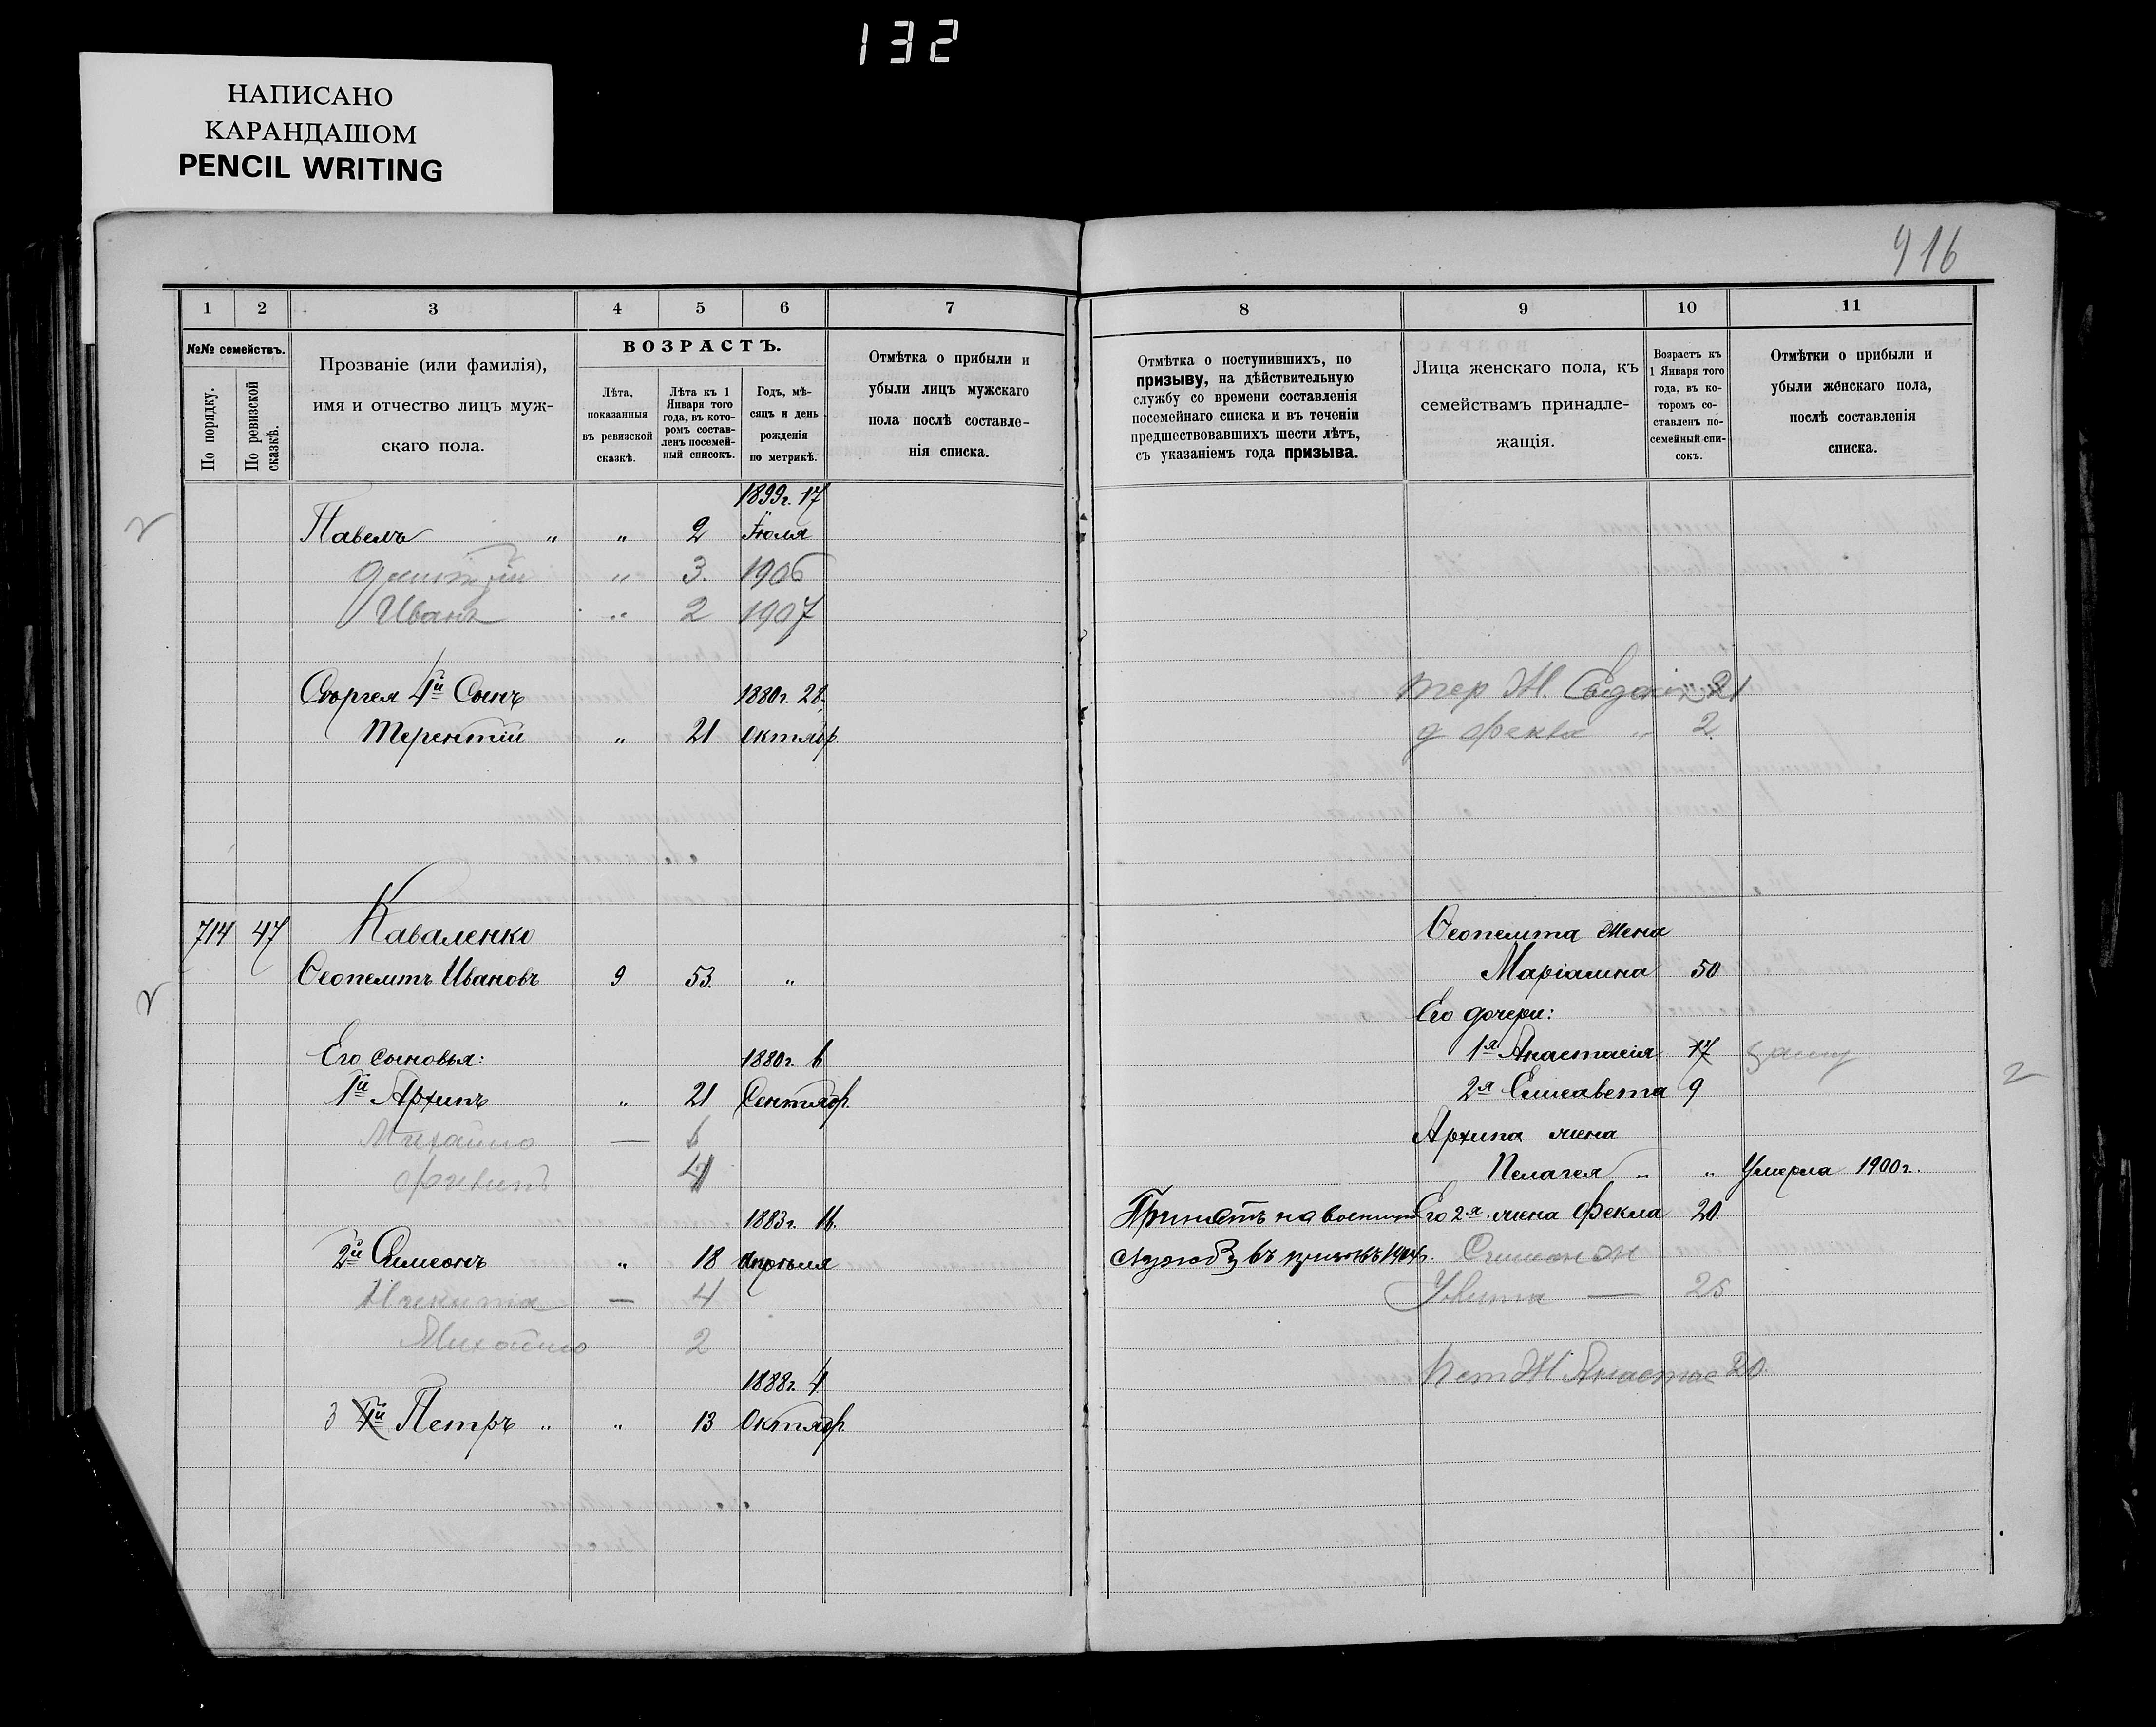 132
НАПИСАНО
КАРАНДАШОМ
PENCIL WRITING
916
1 2 3 4 5 6 7
№№ семействъ.
По порядку.
По ревизской сказкѣ.
Прозваніе (или фамилія),
имя и отчество лицъ муж-
скаго пола.
ВОЗРАСТЪ.
Лѣта,
показанныя
въ ревизской
сказкѣ.
Лѣта къ 1
Января того
года, въ кото-
ромъ состав-
ленъ посемей-
ный списокъ.
Годъ, мѣ-
сяцъ и день
рожденія
по метрикѣ.
Отмѣтка о прибыли и
убыли лицъ мужскаго
пола послѣ составле-
нія списка.
1899г. 17
Павелъ " " 2 Іюля
" 3. 1906
Иванъ " 2 1907
Георгея 4й Сынъ 1880г. 28.
Терентій " 21 Октябр.
714 47 Каваленко
Ѳеопемтъ Ивановъ 9 53. "
Его сыновья: 1880г. 6
1й Архипъ " 21 Сентябр.
Михайло — 6
4
1883г. 16.
2й Симеонъ " 18 Апрѣля
Никита — 4
Михайло 2
1888г. 4
3 4й Петръ " " 13 Октябр.
8 9 10 11
Отмѣтка о поступившихъ, по
призыву, на дѣйствительную
службу со времени составленія
посемейнаго списка и въ теченіи
предшествовавшихъ шести лѣтъ,
съ указаніемъ года призыва.
Лица женскаго пола, къ
семействамъ принадле-
жащія.
Возрастъ къ
1 Января того
года, въ ко-
торомъ со-
ставленъ по-
семейный спи-
сокъ.
Отмѣтки о прибыли и
убыли женскаго пола,
послѣ составленія
списка.
Тер Ж. 21
д Фекла " 2.
Ѳеопемта жена
Маріамна 50
Его дочери:
1я Анастасія 17
2я Елисавета 9
Архипа жена
Пелагея " " Умерла 1900г.
Принятъ на военную Его 2я жена Фекла 20.
въ 1904г. Симеон Ж
— 25
Пет Ж Анастас 20.